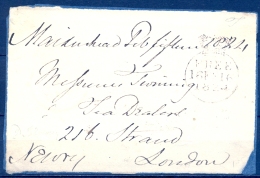 Maidenhead Feb fifteen 1824
Messieurs Twining
Tea Dealers
216 Strand
London
FREE